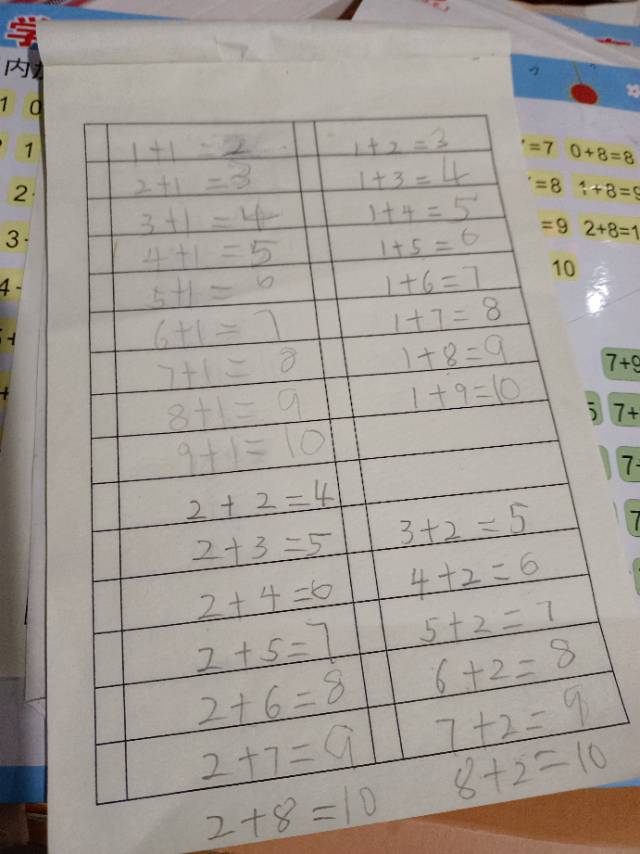 学
内
1 0
1
2
3
4
=7 0+8=8
=8 1+8=9
=9 2+8=1
10
7+9
5 7+
7
7
1+1=2 1+2=3
2+1=3 1+3=4
3+1=4 1+4=5
4+1=5 1+5=6
5+1=6 1+6=7
6+1=7 1+7=8
7+1=8 1+8=9
8+1=9 1+9=10
9+1=10
2+2=4
2+3=5 3+2=5
2+4=6 4+2=6
2+5=7 5+2=7
2+6=8 6+2=8
2+7=9 7+2=9
2+8=10 8+2=10